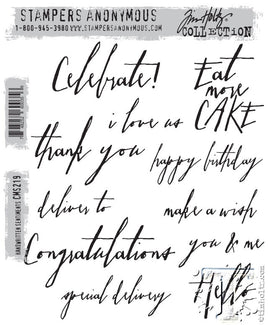 STAMPERS ANONYMOUS
1-800-945-3980 WWW.STAMPERSANONYMOUS.COM
Tim Holtz
COLLECTION
Celebrate!
Eat
more
CAKE
i love us
thank you
happy birthday
deliver to
make a wish
Congratulations
you & me
special delivery
Hello
HANDWRITTEN SENTIMENTS CMS219
timholtz.com